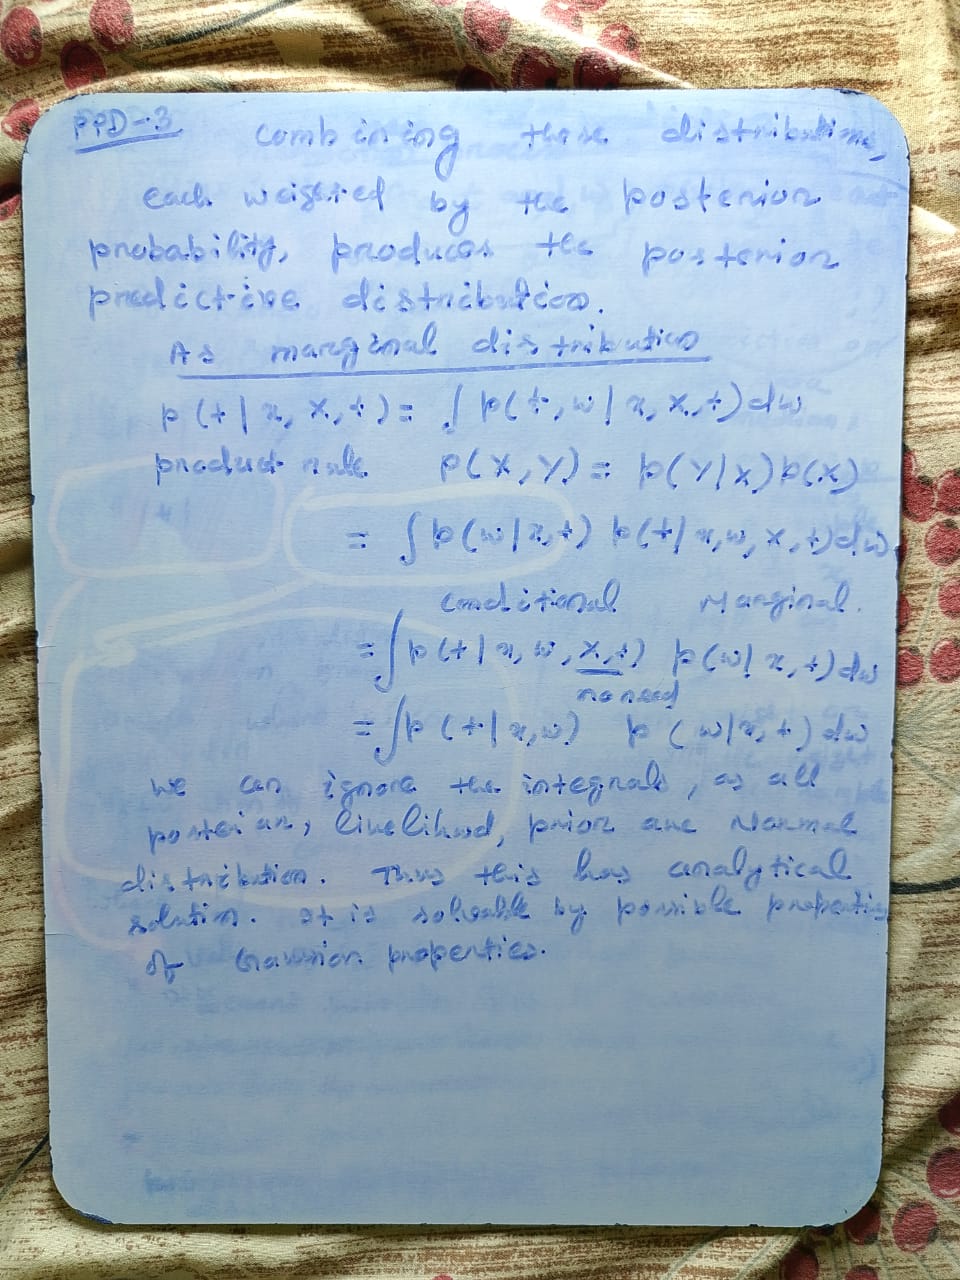 PPD-3 Combining these distributions,
each weighted by the posterior
probability, produces the posterior
predictive distribution.
As marginal distribution
p(t|x, X, t) = ∫ p(t, w | x, X, t) dw
product rule p(X, Y) = p(Y|X) p(X)
= ∫ p(w|x, t) p(t|x, w, X, t) dw
conditional Marginal.
= ∫ p(t|x, w, X, t) p(w|x, t) dw
no need
= ∫ p(t|x, w) p(w|x, t) dw
We can ignore the integrals, as all
posterian, likelihood, prior are Normal
distribution. Thus this has analytical
solution. It is solveable by possible properties
of Gaussian properties.